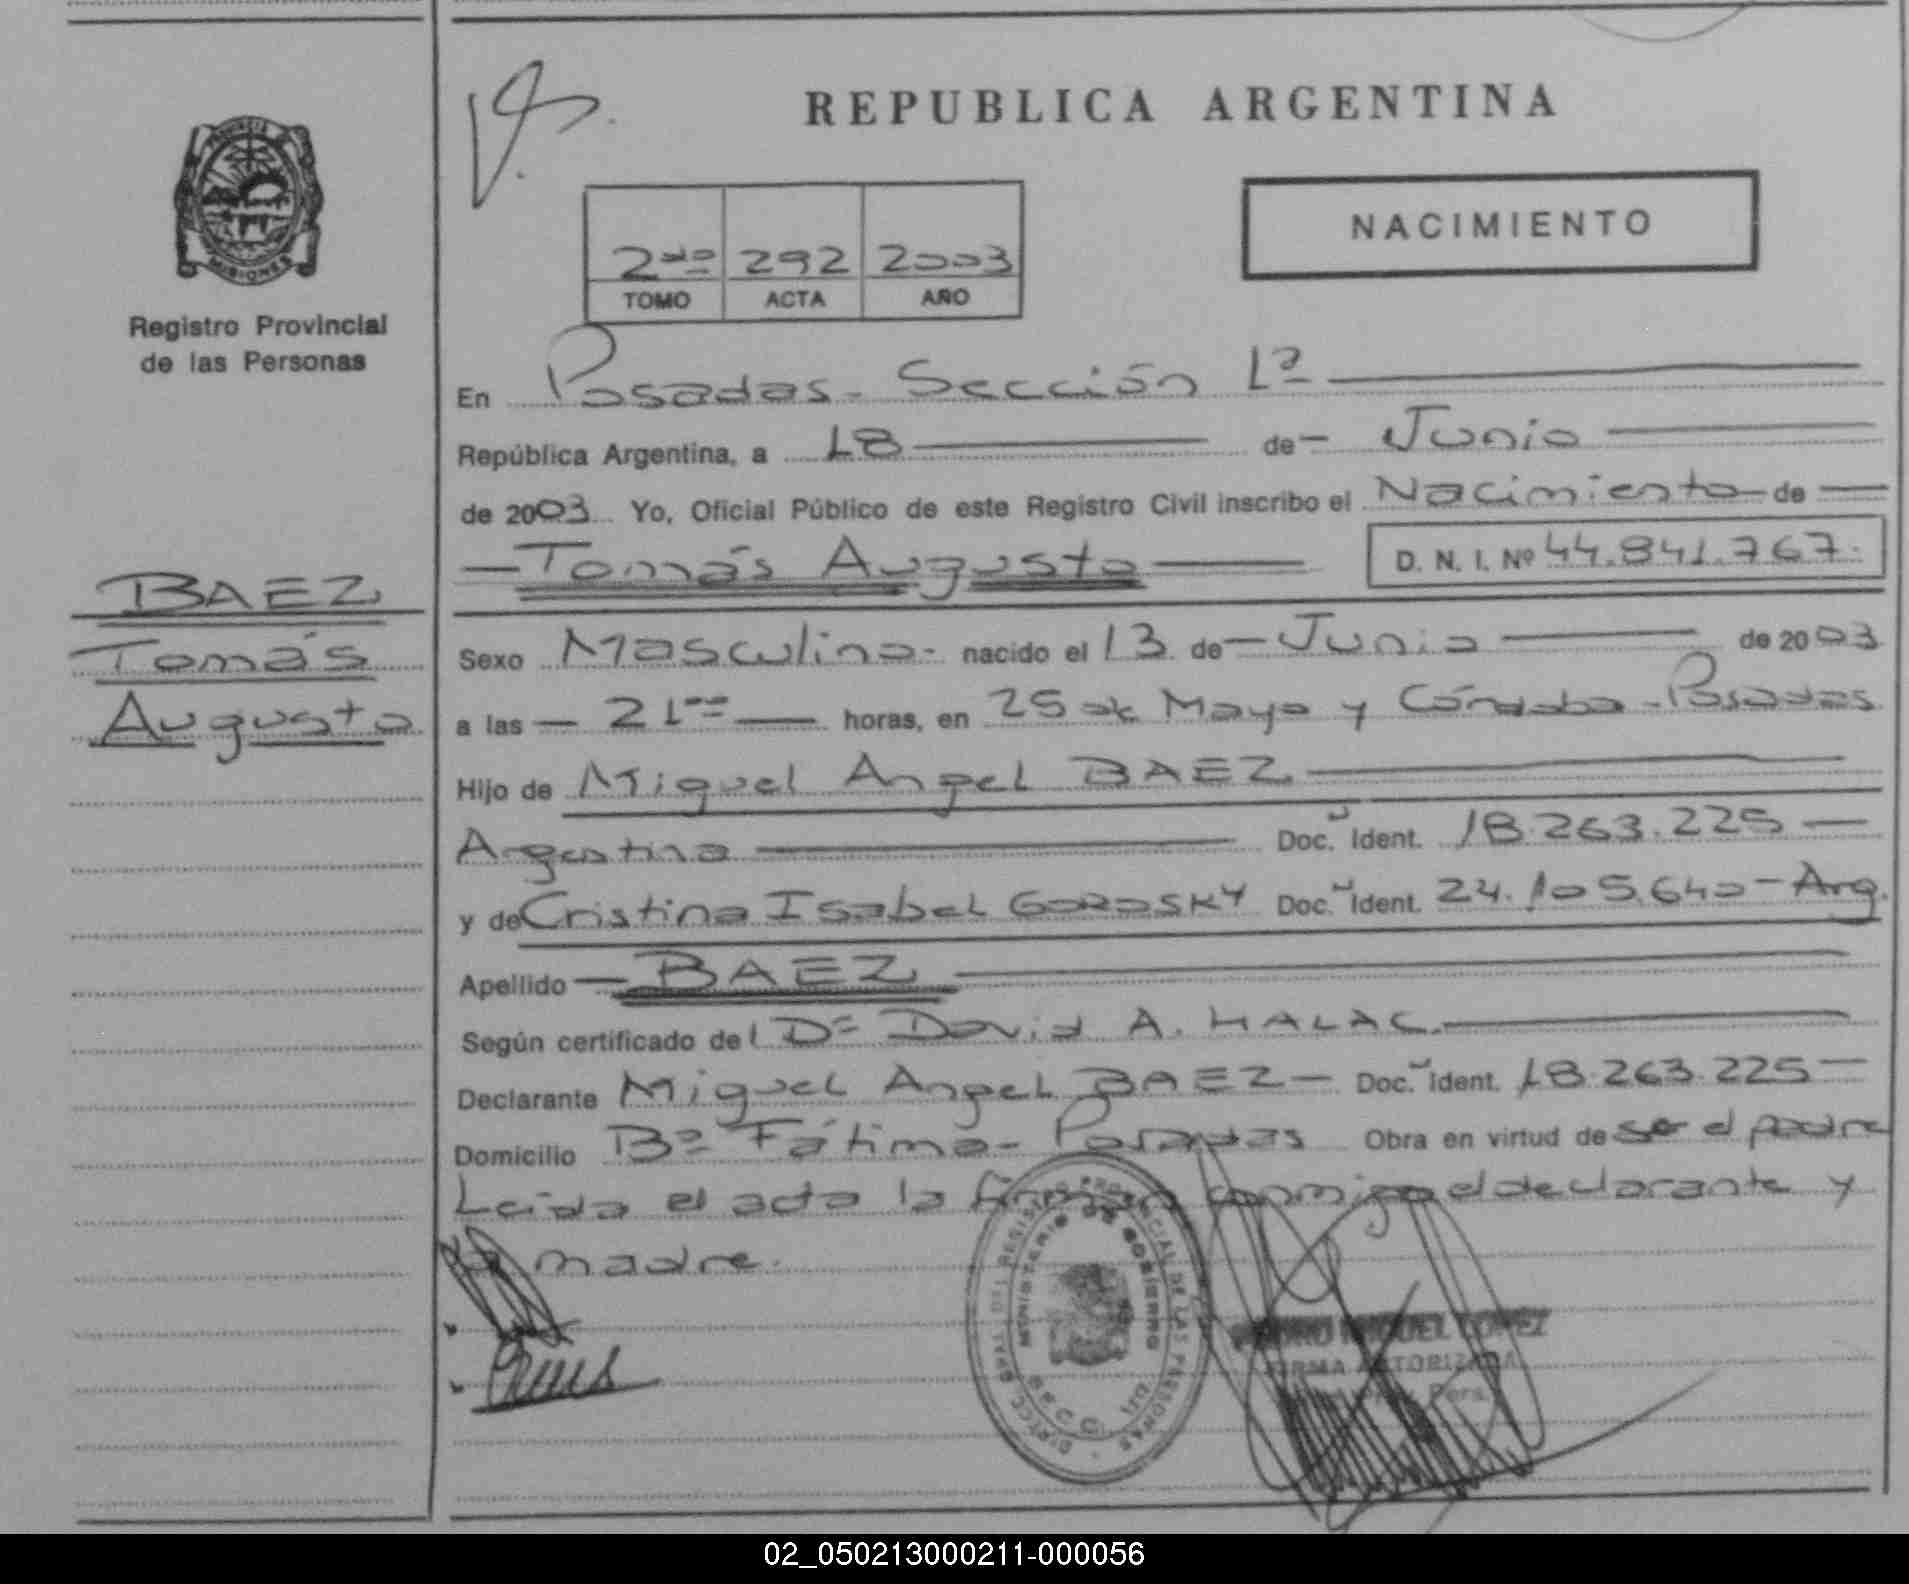 REPUBLICA ARGENTINA
NACIMIENTO
2do 292 2003
TOMO ACTA AÑO
PROVINCIA DE
MISIONES
Registro Provincial
de las Personas
BAEZ
Tomás
Augusto
En Posadas - Sección 1ª
República Argentina, a 18 de Junio
de 2003 Yo, Oficial Público de este Registro Civil inscribo el Nacimiento de
Tomás Augusto D. N. I. Nº 44.841.767.
Sexo Masculino - nacido el 13 de Junio de 2003
a las 21 horas, en 25 de Mayo y Córdoba - Posadas
Hijo de Miguel Angel BAEZ
Argentina Doc. Ident. 18.263.225
y de Cristina Isabel GOROSKY Doc. Ident. 24.105.640 - Arg.
Apellido BAEZ
Según certificado del Dr David A. HALAC.
Declarante Miguel Angel BAEZ - Doc. Ident. 18.263.225
Domicilio Bº Fátima - Posadas Obra en virtud de ser el padre
Leída el acta la firman conmigo el declarante y
la madre.
DIRECC. GRAL. DEL REGISTRO PROVINCIAL DE LAS PERSONAS
MINISTERIO DE GOBIERNO
MIGUEL LOPEZ
FIRMA AUTORIZADA
Pers.
02_050213000211-000056